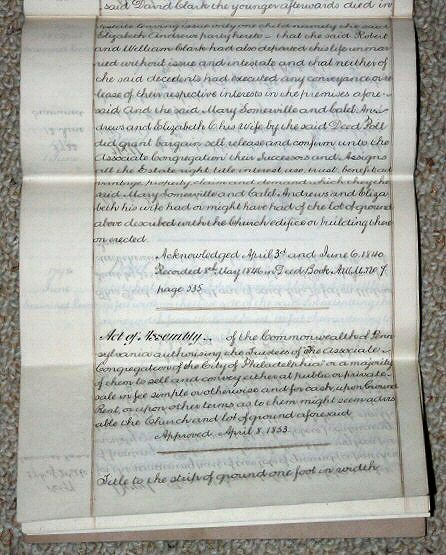 said David Clark the younger afterwards died in
testate leaving issue only one child namely the said
Elizabeth Andrews party hereto – that the said Robert
and William Clark had also departed this life unmar
ried without issue and intestate and that neither of
the said decedents had executed any conveyance or re
lease of their respective interests in the premises afore
said And the said Mary Somerville and Caleb An
drews and Elizabeth C his Wife by the said Deed Poll
did grant bargain sell release and confirm unto the
Associate Congregation their Successors and Assigns
all the Estate right title interest use, trust, benefit ad
vantage property claim and demand which they the
said Mary Somerville and Caleb Andrews and Eliza
beth his wife had or might have had of the lot of ground
above described with the Church edifice or building there
on erected.
Acknowledged April 3d and June 6. 1840
Recorded 8th May 1846 in Deed Book
page 535
Act of Assembly of the Commonwealth of Penn
sylvania authorising the Trustees of "The Associate
Congregation of the City of Philadelphia" or a majority
of them to sell and convey either at public or private
sale in fee simple or otherwise and for cash, upon Ground
Rent, or upon other terms as to them might seem advis
able the Church and lot of ground aforesaid
Approved April 8. 1853
Title to the strip of ground one foot in width